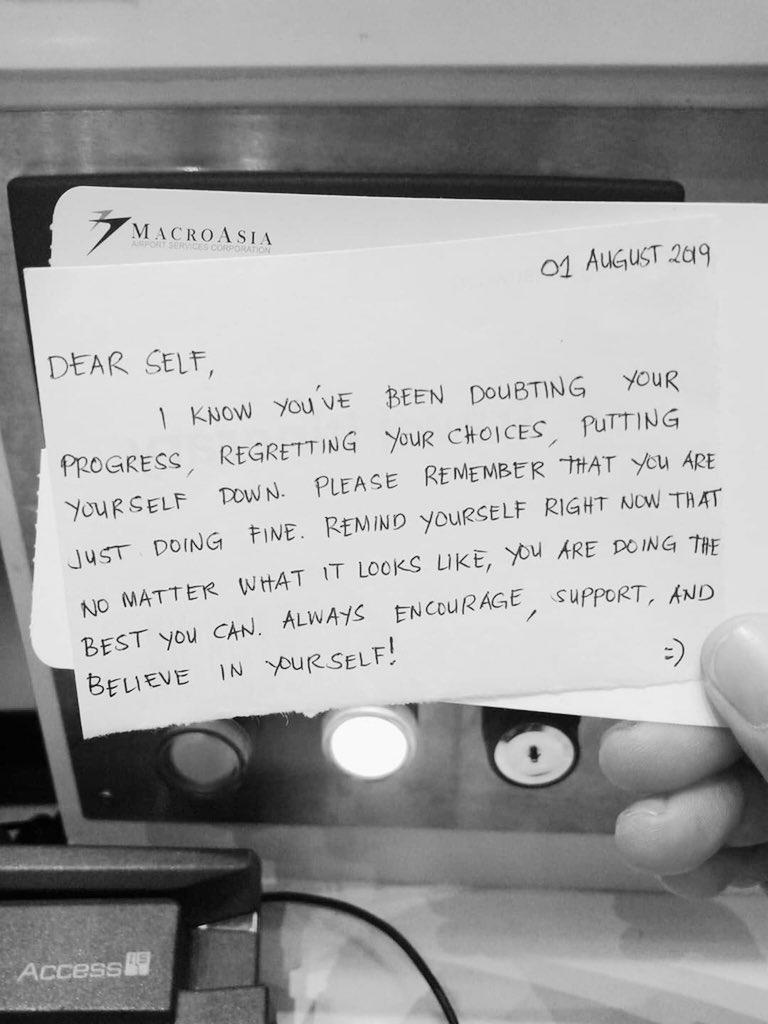 MACROASIA
AIRPORT SERVICES CORPORATION
01 AUGUST 2019
DEAR SELF,
I KNOW YOU'VE BEEN DOUBTING YOUR
PROGRESS, REGRETTING YOUR CHOICES, PUTTING
YOURSELF DOWN. PLEASE REMEMBER THAT YOU ARE
JUST DOING FINE. REMIND YOURSELF RIGHT NOW THAT
NO MATTER WHAT IT LOOKS LIKE, YOU ARE DOING THE
BEST YOU CAN. ALWAYS ENCOURAGE, SUPPORT, AND
BELIEVE IN YOURSELF! =)
Access